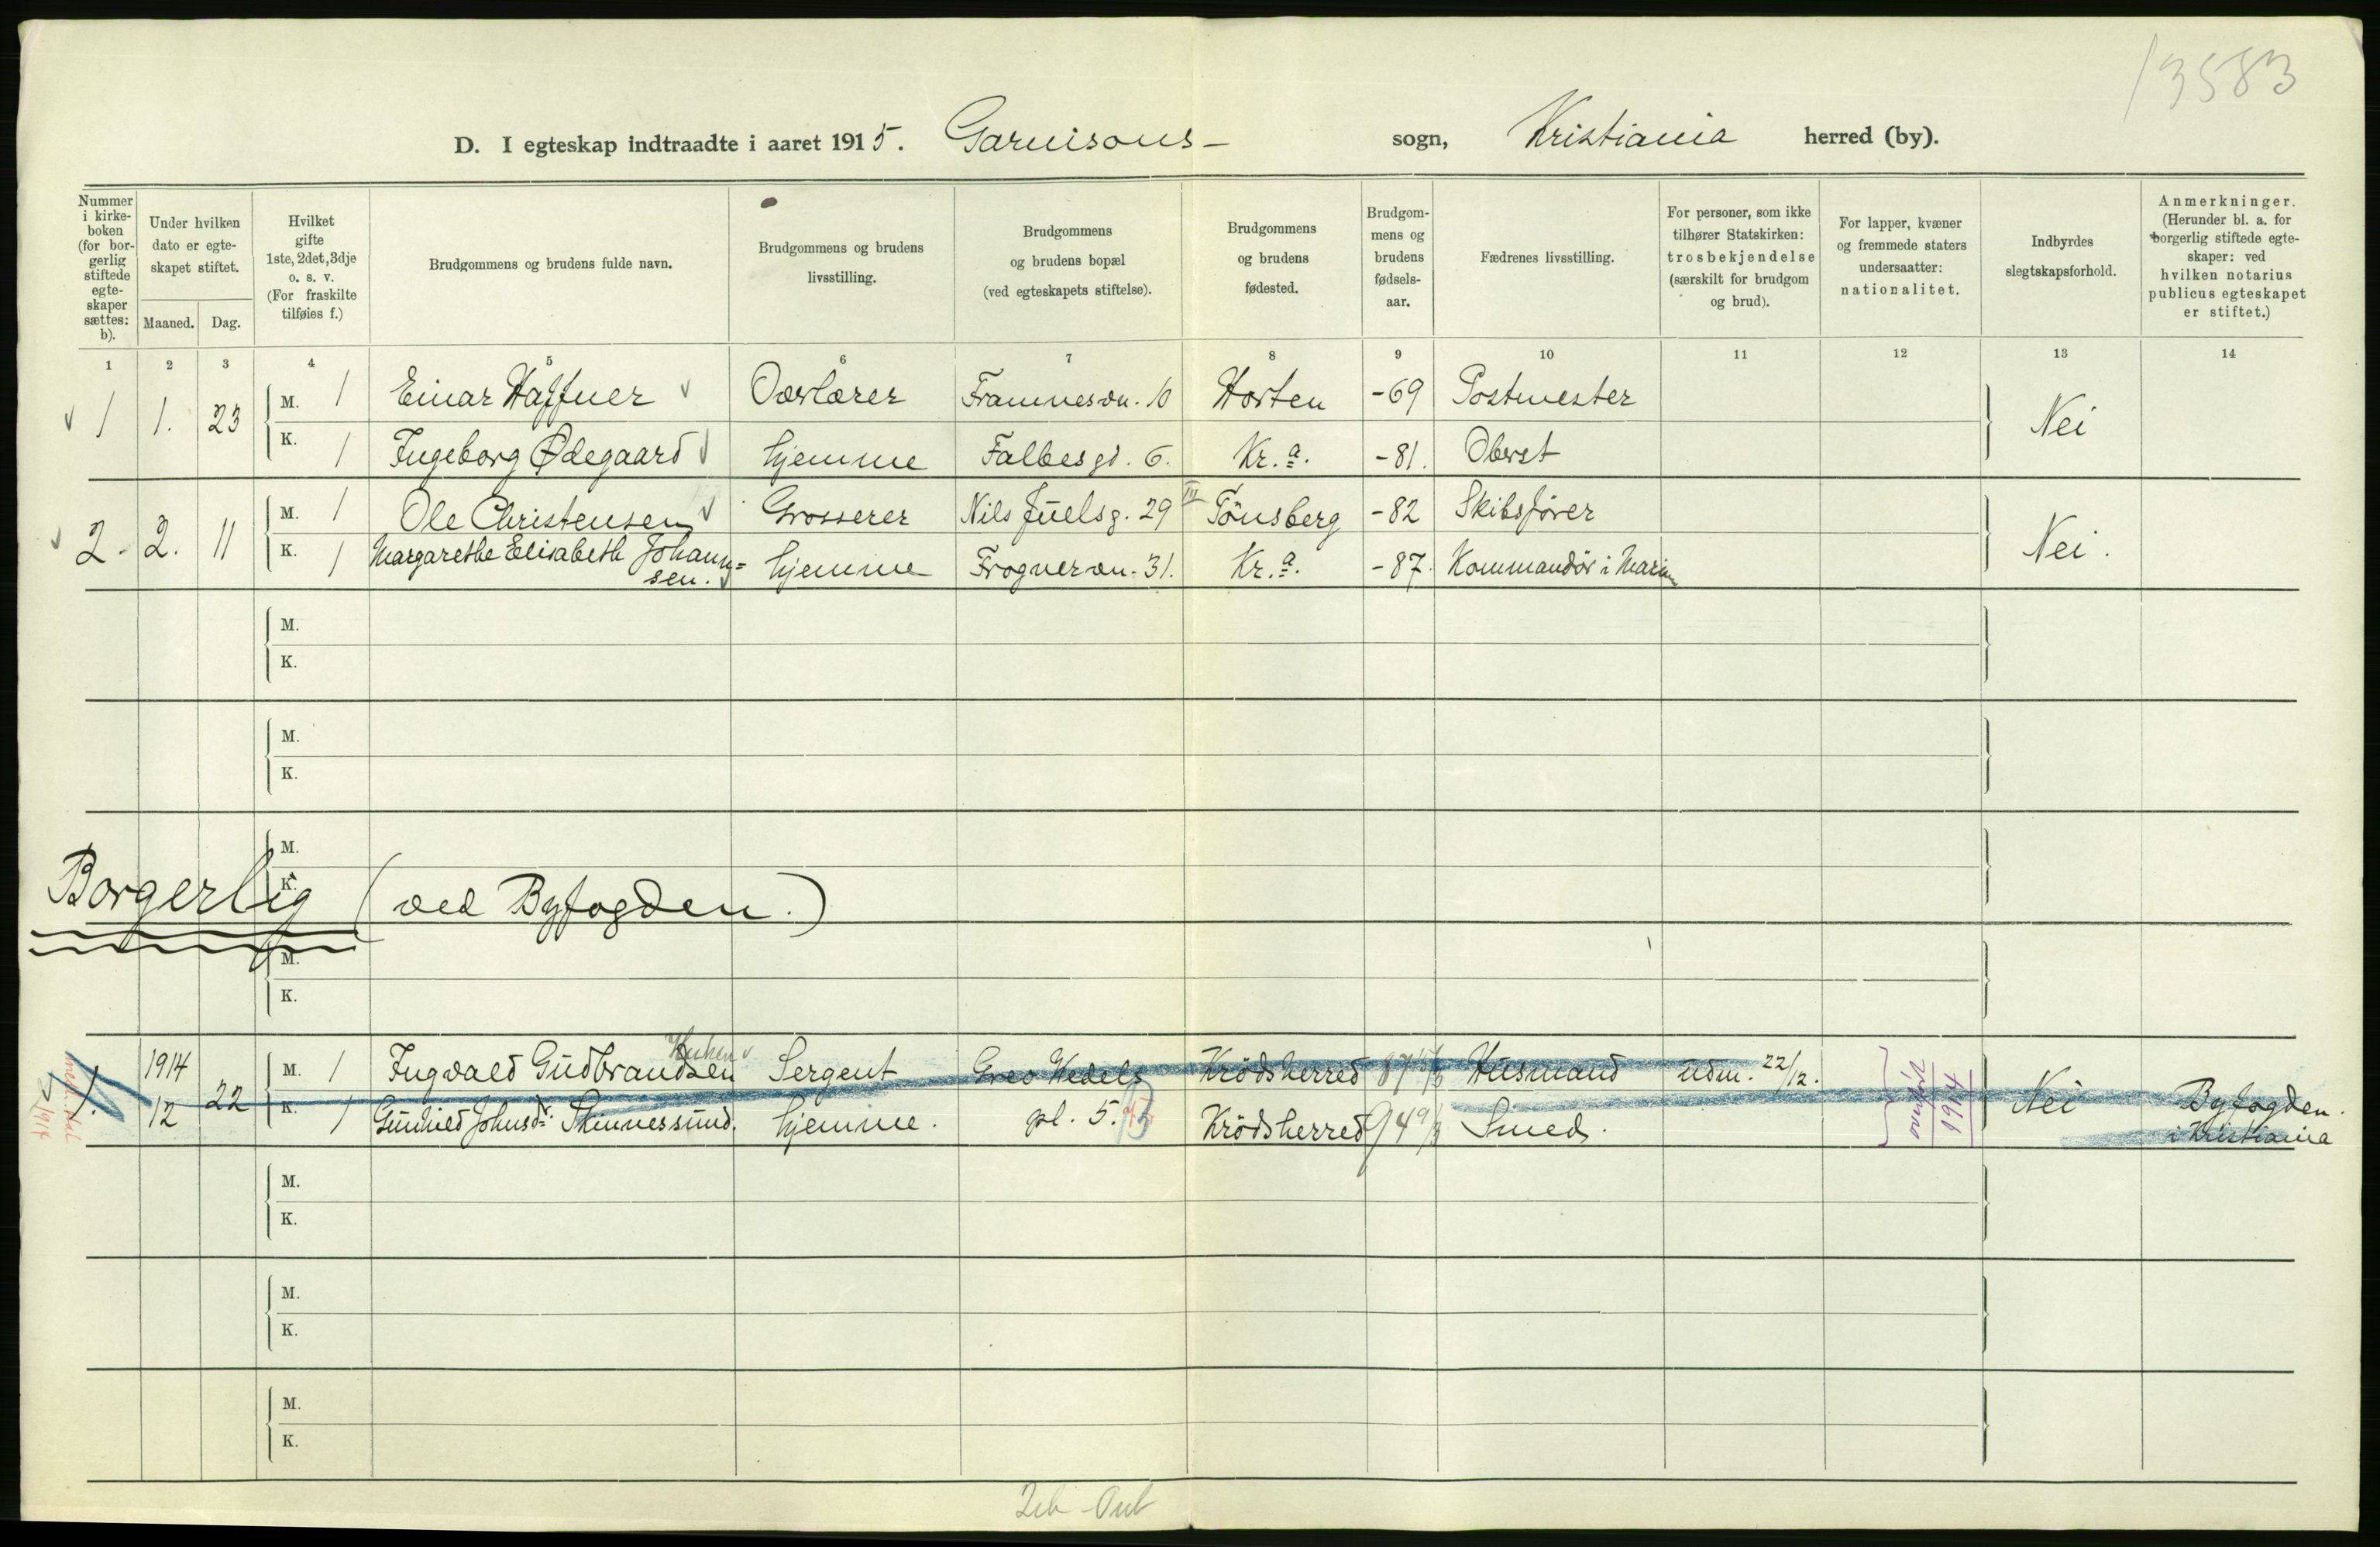 13583
D. I egteskap indtraadte i aaret 1915. Garnisons- sogn, Kristiania herred (by).
Nummer i kirkeboken (for borgerlig stiftede egteskaper sættes: b).
Under hvilken dato er egteskapet stiftet.
Maaned. Dag.
Hvilket gifte 1ste, 2det, 3dje o. s. v. (For fraskilte tilføies f.)
Brudgommens og brudens fulde navn.
Brudgommens og brudens livsstilling.
Brudgommens og brudens bopæl (ved egteskapets stiftelse).
Brudgommens og brudens fødested.
Brudgommens og brudens fødselsaar.
Fædrenes livsstilling.
For personer, som ikke tilhører Statskirken: trosbekjendelse (særskilt for brudgom og brud).
For lapper, kvæner og fremmede staters undersaatter: nationalitet.
Indbyrdes slegtskapsforhold.
Anmerkninger. (Herunder bl. a. for borgerlig stiftede egteskaper: ved hvilken notarius publicus egteskapet er stiftet.)
1 2 3 4 5 6 7 8 9 10 11 12 13 14
1 1. 23 M. 1 Einar Haffner Overlærer Framnesvn. 10 Horten -69 Postmester Nei
K. 1 Ingeborg Ødegaard hjemme Falbesgt. 6. Kr.a. -81. Oberst
2. 2. 11 M. 1 Ole Christensen Grosserer Nils Juelsg. 29 III Tönsberg -82 Skibsfører Nei.
K. 1 Margarethe Elisabeth Johann=
sen. hjemme Frognervn. 31. Kr.a. -87. Kommandör i Marin
M.
K.
M.
K.
M.
K.
Borgerlig (ved Byfogden.)
M.
K.
1. 1914 12 22 M. 1 Ingvald Gudbrandsen Sergent Grev Wedels Krödsherred 87 Husmand udm. 22/12. overført 1914 Nei Byfogden.
K. 1 Gunhild Johnsd. Skinnessund. hjemme. pl. 5. Krödsherred 94 Smed. i Kristiania
M.
K.
M.
K.
M.
K.